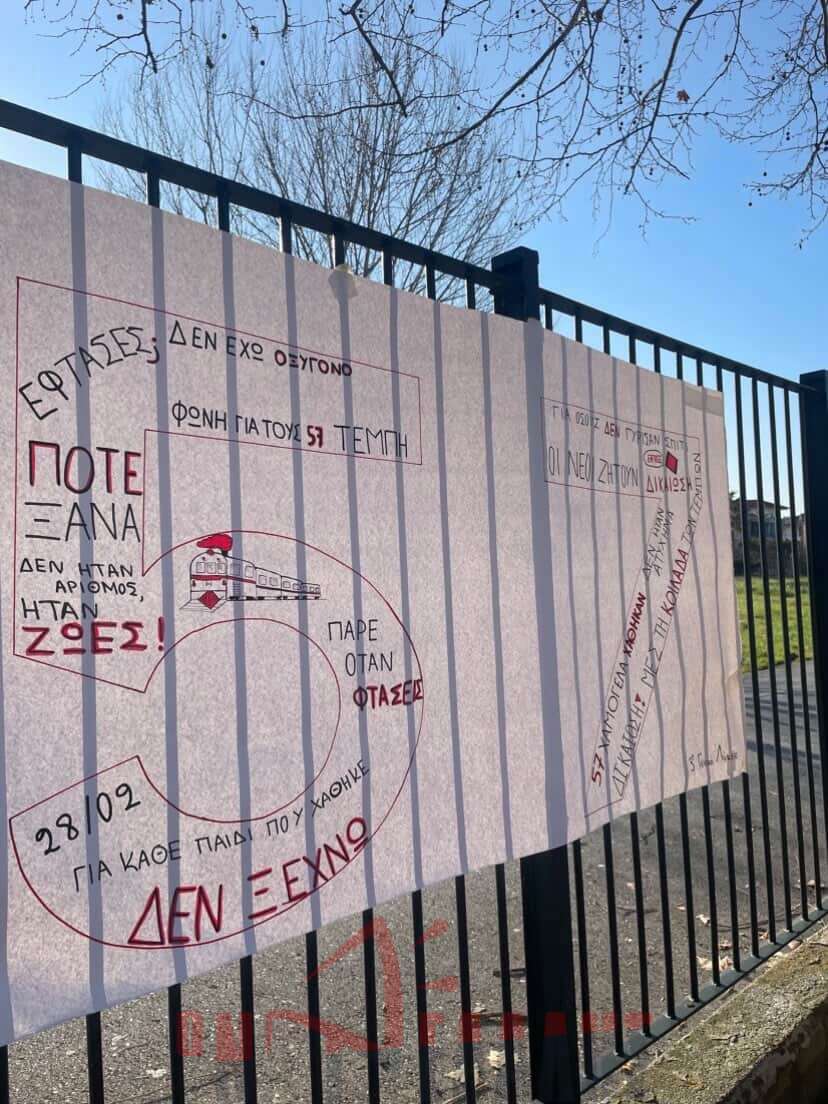 ΕΦΤΑΣΕΣ;
ΔΕΝ ΕΧΩ ΟΞΥΓΟΝΟ
ΦΩΝΗ ΓΙΑ ΤΟΥΣ 57 ΤΕΜΠΗ
ΠΟΤΕ
ΞΑΝΑ
ΔΕΝ ΗΤΑΝ
ΑΡΙΘΜΟΣ,
ΗΤΑΝ
ΖΩΕΣ!
ΠΑΡΕ
ΟΤΑΝ
ΦΤΑΣΕΙΣ
28/02
ΓΙΑ ΚΑΘΕ ΠΑΙΔΙ ΠΟΥ ΧΑΘΗΚΕ
ΔΕΝ ΞΕΧΝΩ
ΓΙΑ ΟΣΟΥΣ ΔΕΝ ΓΥΡΙΣΑΝ ΣΠΙΤΙ
ΟΙ ΝΕΟΙ ΖΗΤΟΥΝ
ΔΙΚΑΙΩΣΗ
ΔΕΝ ΗΤΑΝ
ΑΤΥΧΗΜΑ
57 ΧΑΜΟΓΕΛΑ ΧΑΘΗΚΑΝ
ΜΕΣ ΤΗ ΚΟΙΛΑΔΑ ΤΩΝ ΤΕΜΠΩΝ
ΔΙΚΑΙΩΣΗ!